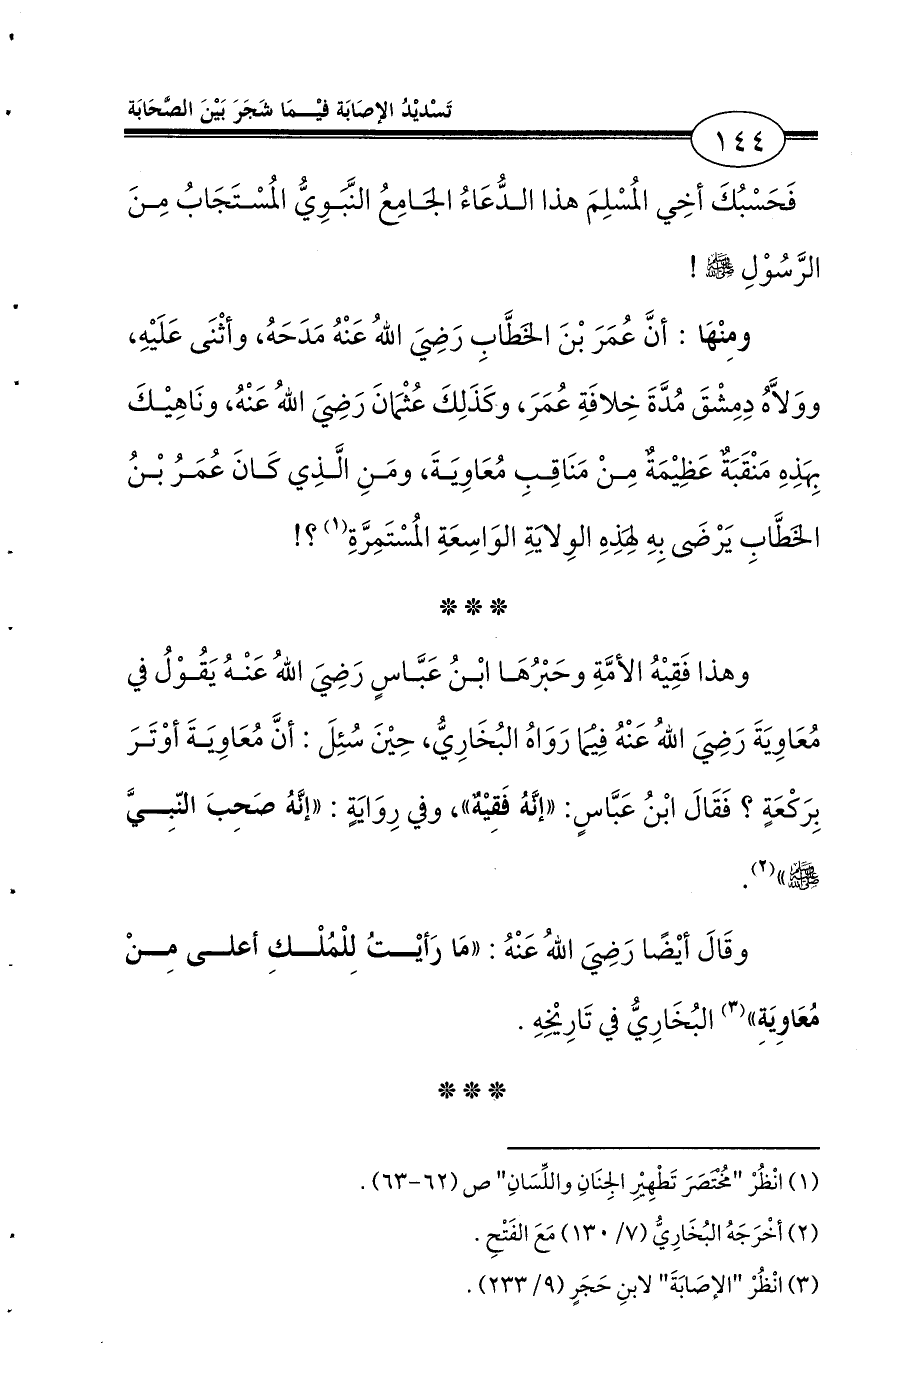 تَسْدِيْدُ الإصَابَة فيْـمَا شَجَرَ بَيْنَ الصَّحَابَة
١٤٤
فَحَسْبُكَ أخِي المُسْلِمَ هذا الدُّعَاءُ الجَامِعُ النَّبَوِيُّ المُسْتَجَابُ مِنَ
الرَّسُوْلِ ﷺ !
ومِنْهَا : أنَّ عُمَرَ بْنَ الخَطَّابِ رَضِيَ اللهُ عَنْهُ مَدَحَهُ، وأثْنَى عَلَيْهِ،
ووَلاَّهُ دِمِشْقَ مُدَّةَ خِلافَةِ عُمَرَ، وكَذَلِكَ عُثْمَانَ رَضِيَ اللهُ عَنْهُ، ونَاهِيْكَ
بِهَذِهِ مَنْقَبَةٌ عَظِيْمَةٌ مِنْ مَنَاقِبِ مُعَاوِيَةَ، ومَنِ الَّذِي كَانَ عُمَرُ بْنُ
الخَطَّابِ يَرْضَى بِهِ لِهَذِهِ الوِلايَةِ الوَاسِعَةِ المُسْتَمِرَّةِ(١) ؟!
***
وهذا فَقِيْهُ الأمَّةِ وحَبْرُهَا ابْنُ عَبَّاسٍ رَضِيَ اللهُ عَنْهُ يَقُوْلُ في
مُعَاوِيَةَ رَضِيَ اللهُ عَنْهُ فِيْمَا رَوَاهُ البُخَارِيُّ، حِيْنَ سُئِلَ : أنَّ مُعَاوِيَةَ أوْتَرَ
بِرَكْعَةٍ ؟ فَقَالَ ابْنُ عَبَّاسٍ: «إنَّهُ فَقِيْهٌ»، وفي رِوَايَةٍ : «إنَّهُ صَحِبَ النَّبِيَّ
ﷺ»(٢).
وقَالَ أيْضًا رَضِيَ اللهُ عَنْهُ : «مَا رَأيْتُ لِلْمُلْكِ أعلى مِنْ
مُعَاوِيَةِ»(٣) البُخَارِيُّ في تَارِيْخِهِ .
***
(١) انْظُرْ "مُخْتَصَرَ تَطْهِيْرِ الجِنَانِ واللِّسَانِ" ص (٦٢-٦٣) .
(٢) أخْرَجَهُ البُخَارِيُّ (٧/ ١٣٠) مَعَ الفَتْحِ .
(٣) انْظُرْ "الإصَابَةَ" لابنِ حَجَرٍ (٩/ ٢٣٣) .